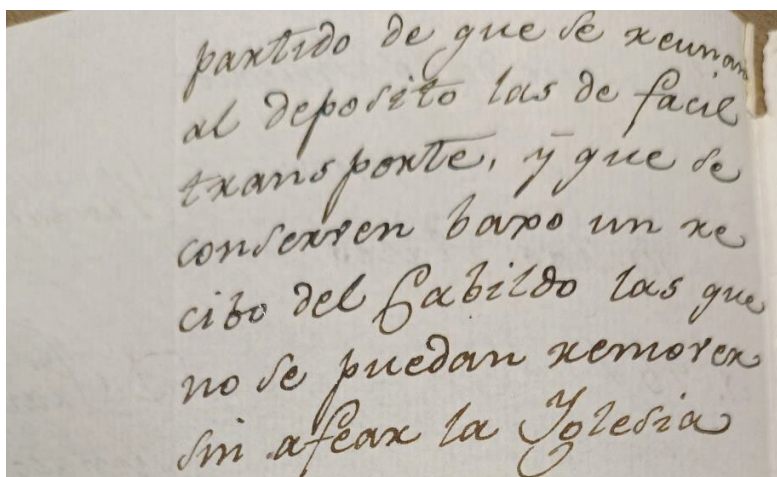 partido de que se reunan
al deposito las de facil
transporte, y que se
conserven baxo un re
cibo del Cabildo las que
no se puedan remover
sin afear la Yglesia